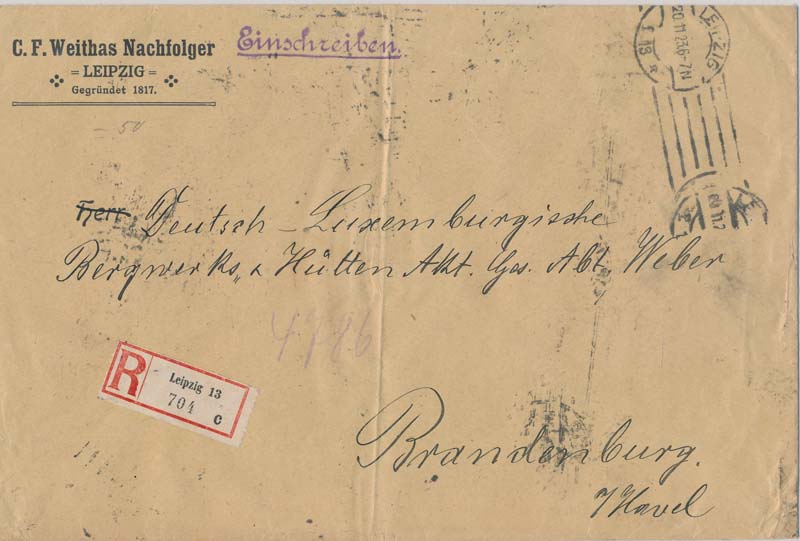 C. F. Weithas Nachfolger
= LEIPZIG =
Gegründet 1817.
Einschreiben.
LEIPZIG
20.11.23.6-7N
13
= 50
Herr Deutsch-Luxemburgische
Bergwerks„ & Hütten Akt. Ges. Abt. Weber
4786
R
Leipzig 13
704 c
Brandenburg.
/Havel